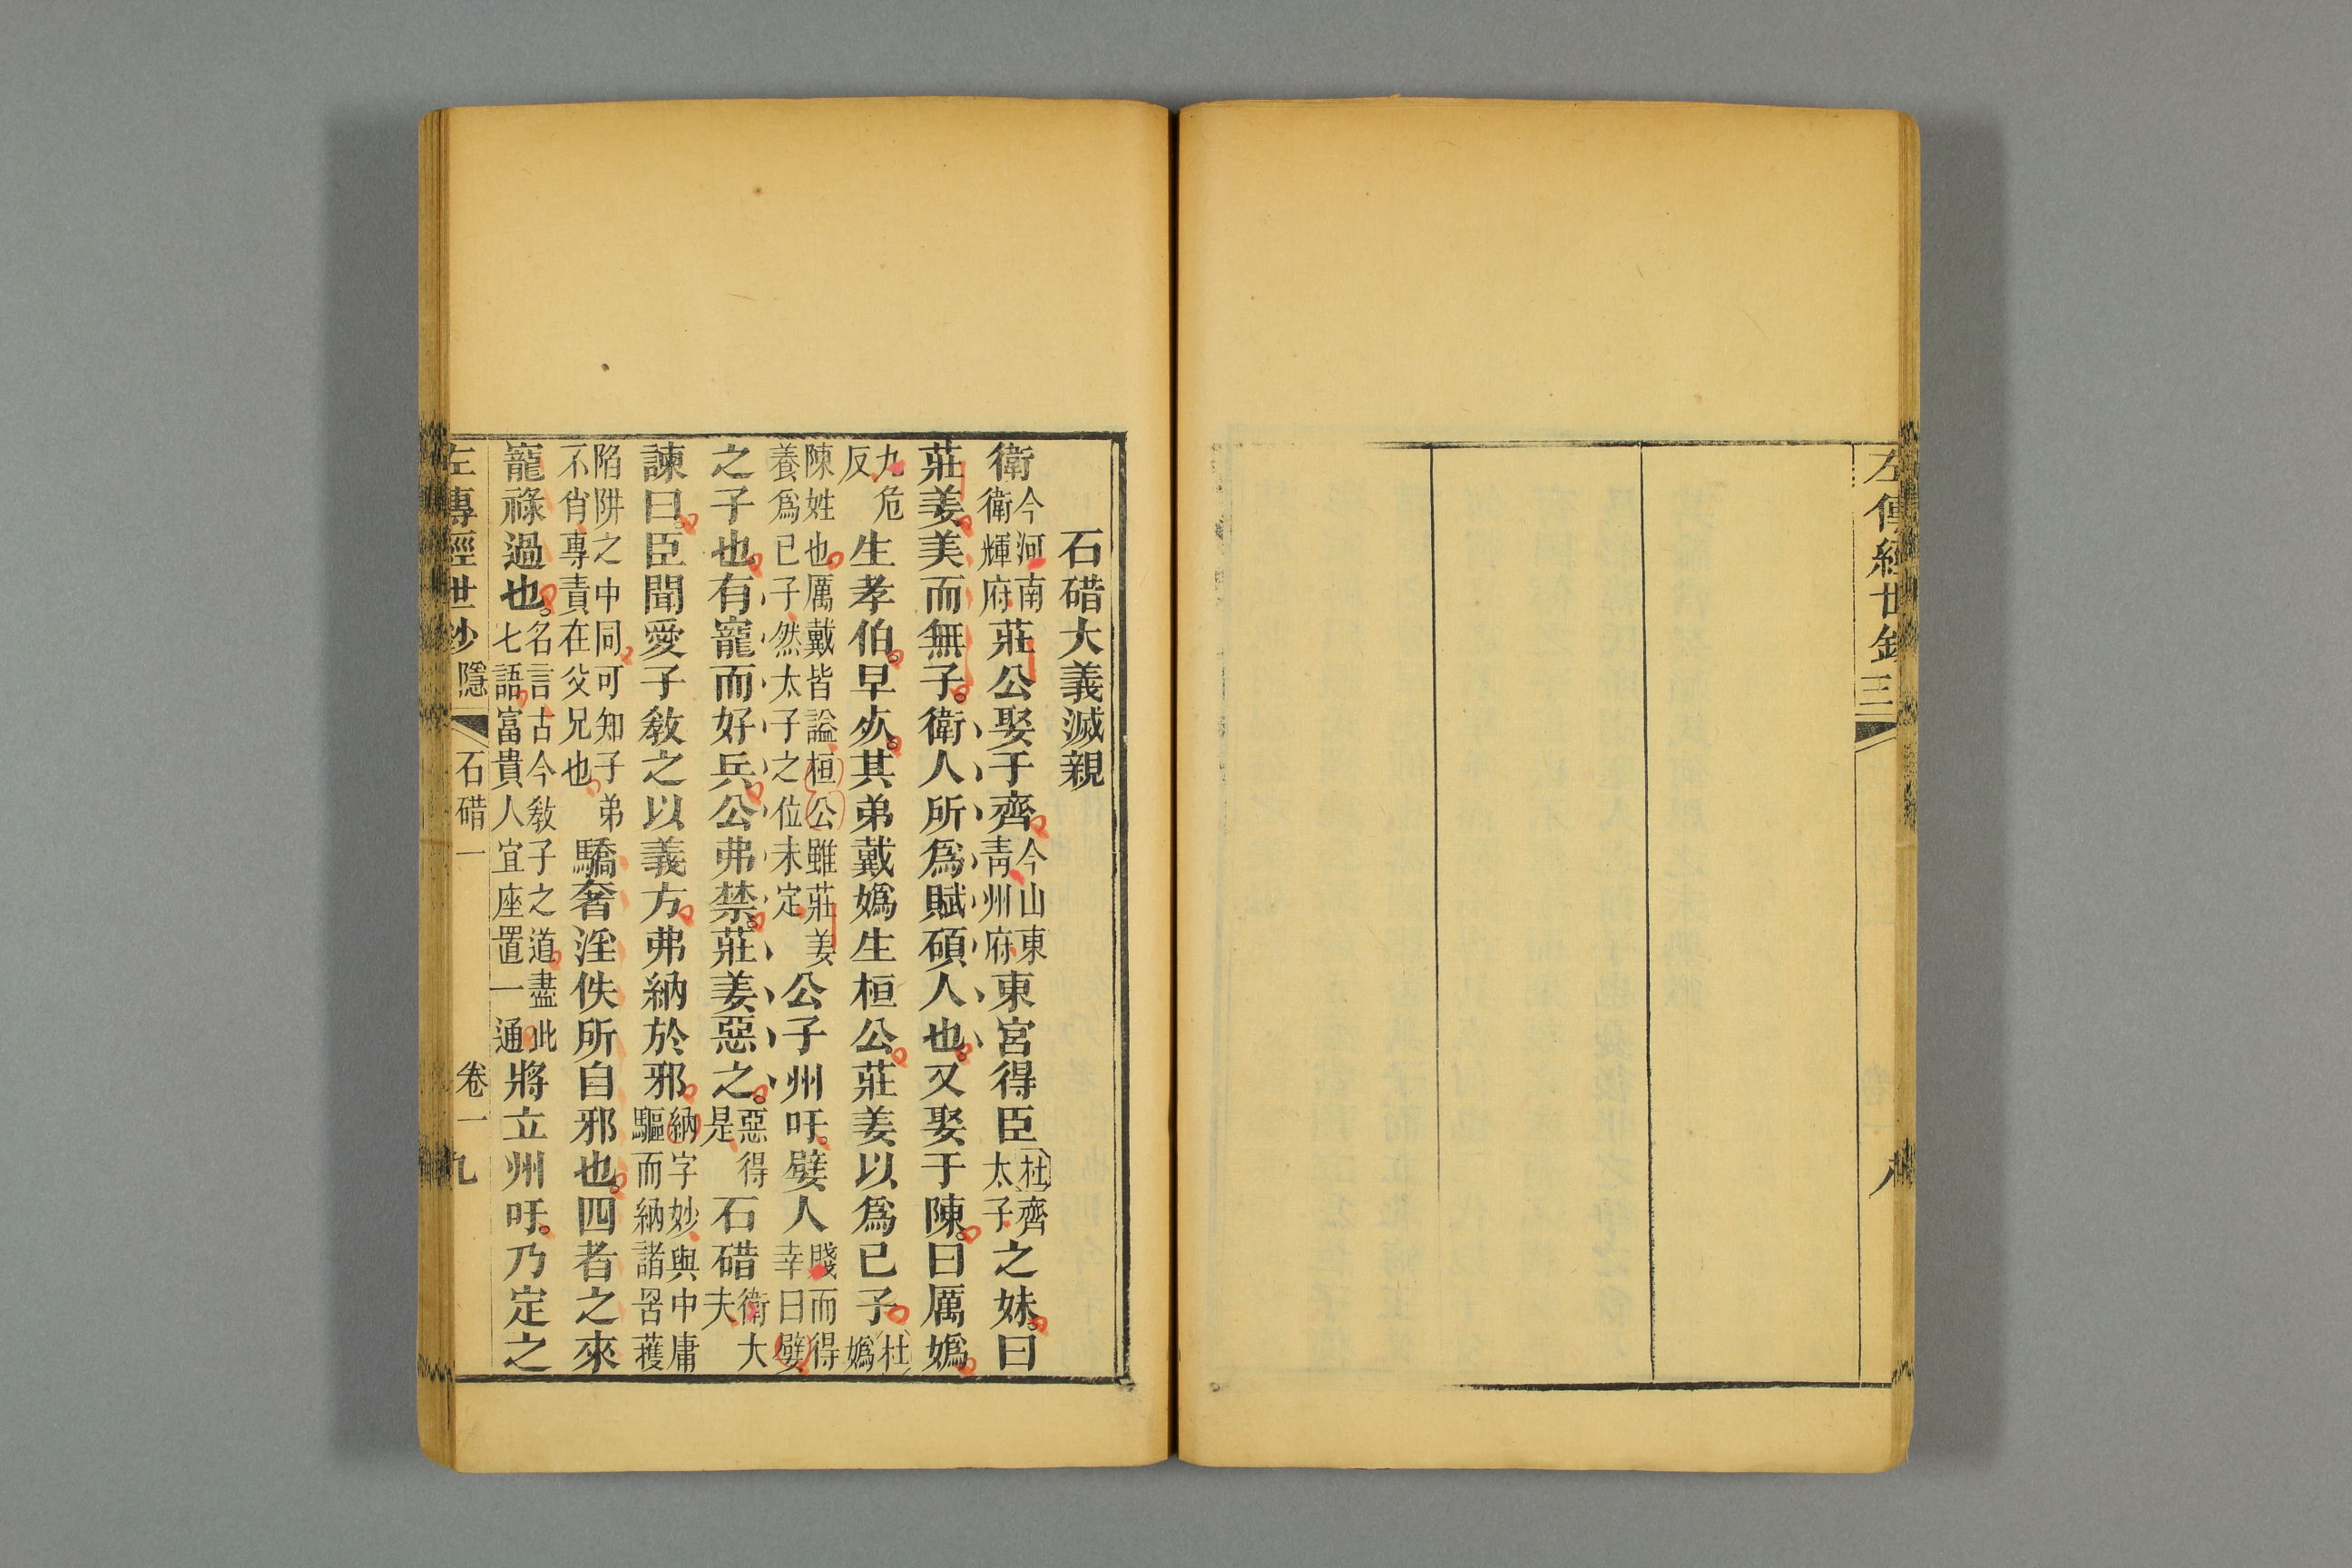 左傳經世鈔 三 八
石碏大義滅親
衛今河南衛輝府莊公娶于齊今山東青州府東宮得臣杜齊太子之妹。曰
莊姜美而無子。衛人所爲賦碩人也。又娶于陳。曰厲嬀。
九危反生孝伯。早死。其弟戴嬀生桓公。莊姜以爲已子杜嬀
陳姓也厲戴皆諡桓公雖莊姜養爲已子然太子之位未定公子州吁。嬖人賤而得幸曰嬖
之子也有寵而好兵公弗禁。莊姜惡之。惡得是石碏衛大夫
諫曰。臣聞愛子敎之以義方弗納於邪納字妙與中庸驅而納諸罟擭
陷阱之中同可知子弟不肖專責在父兄也驕奢淫佚所自邪也。四者之來
寵祿過也。名言古今敎子之道盡此七語富貴人宜座置一通將立州吁。乃定之
左傳經世鈔 隱 石碏一 卷一 九